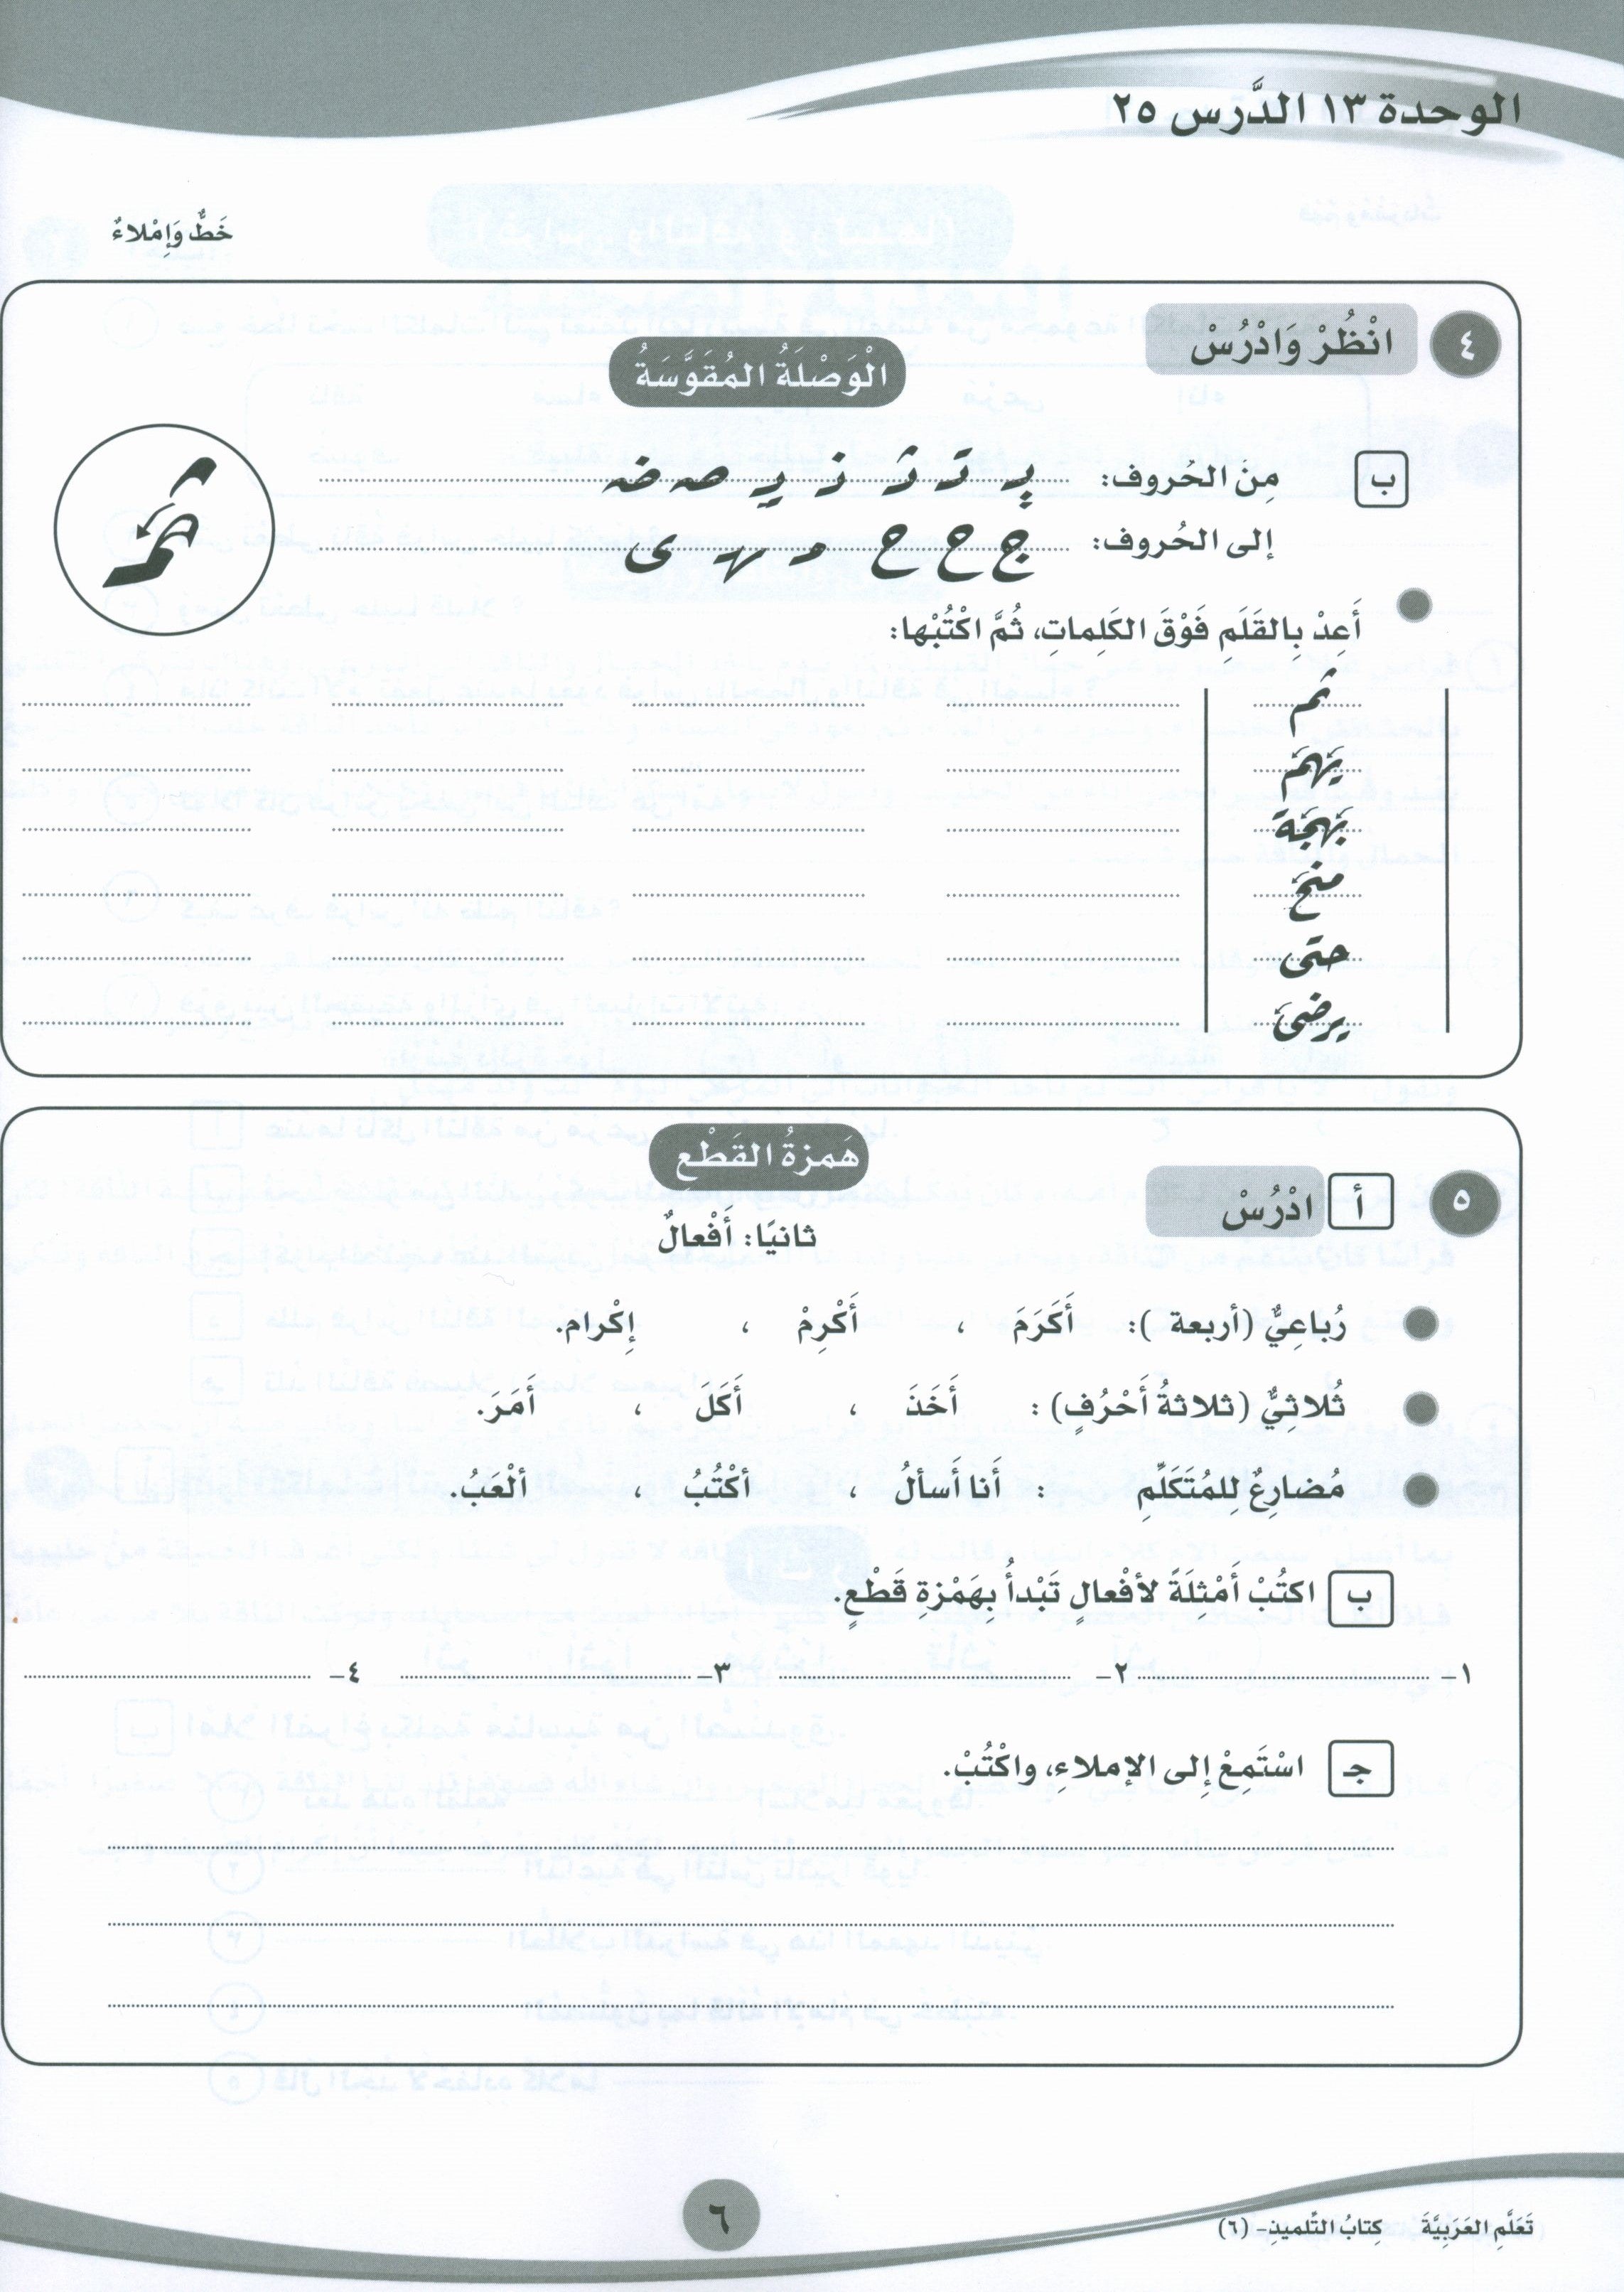 الوحدة ١٣ الدَّرس ٢٥
خَطٌّ وَإِمْلاءٌ
٤ انْظُرْ وَادْرُسْ
الْوَصْلَةُ المُقَوَّسَةُ
ب مِنَ الحُروف: بـ تـ ثـ نـ يـ صـ ضـ
إلى الحُروف: ج ح خ م ـهـ ى
أَعِدْ بِالقَلَمِ فَوْقَ الكَلِماتِ، ثُمَّ اكْتُبْها:
ثم
يَهُمّ
بَهجَة
منح
حتى
يرضى
٥ أ ادْرُسْ
هَمزةُ القَطْع
ثانيًا: أَفْعالٌ
رُباعِيٌّ (أربعة ): أَكَرَمَ ، أَكْرِمْ ، إِكْرام.
ثُلاثِيٌّ (ثلاثةُ أَحْرُفٍ) : أَخَذَ ، أَكَلَ ، أَمَرَ.
مُضارِعٌ لِلمُتَكَلِّمِ : أَنا أَسألُ ، أكْتُبُ ، ألْعَبُ.
ب اكتُبْ أَمْثِلَةً لأفْعالٍ تَبْدأُ بِهَمْزةِ قَطْعٍ.
١- ٢- ٣- ٤-
جـ اسْتَمِعْ إلى الإملاءِ، واكْتُبْ.
تَعَلَّمِ العَرَبِيَّةَ كِتابُ التِّلميذِ- (٦)
٦